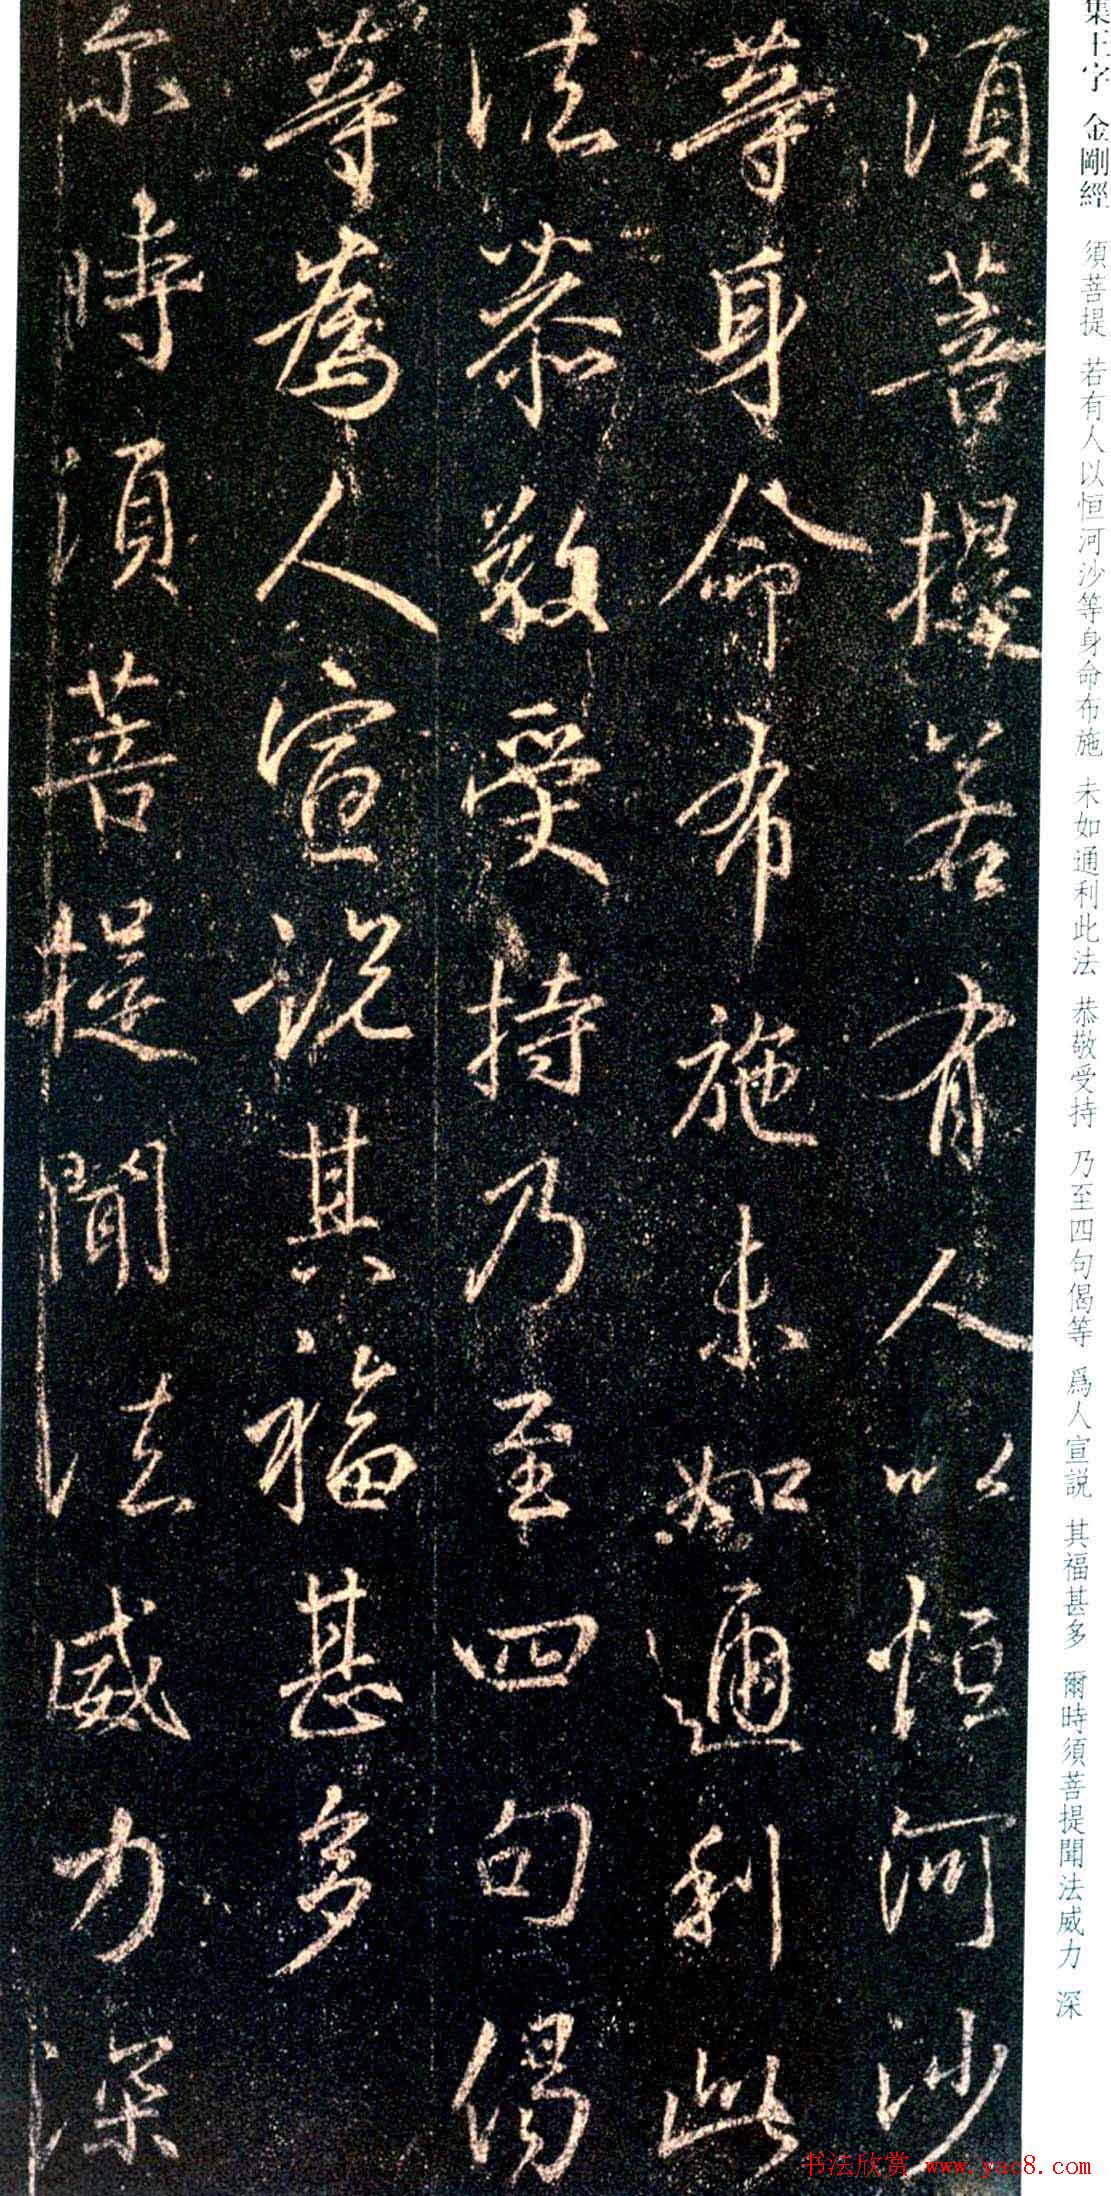 集王字 金剛經 須菩提 若有人以恒河沙等身命布施 未如通利此法 恭敬受持 乃至四句偈等 爲人宣説 其福甚多 爾時須菩提聞法威力 深
須菩提若有人以恒河沙
等身命布施未如通利此
法恭敬受持乃至四句偈
等為人宣説其福甚多
尒時須菩提聞法威力深
书法欣赏 www.yac8.com